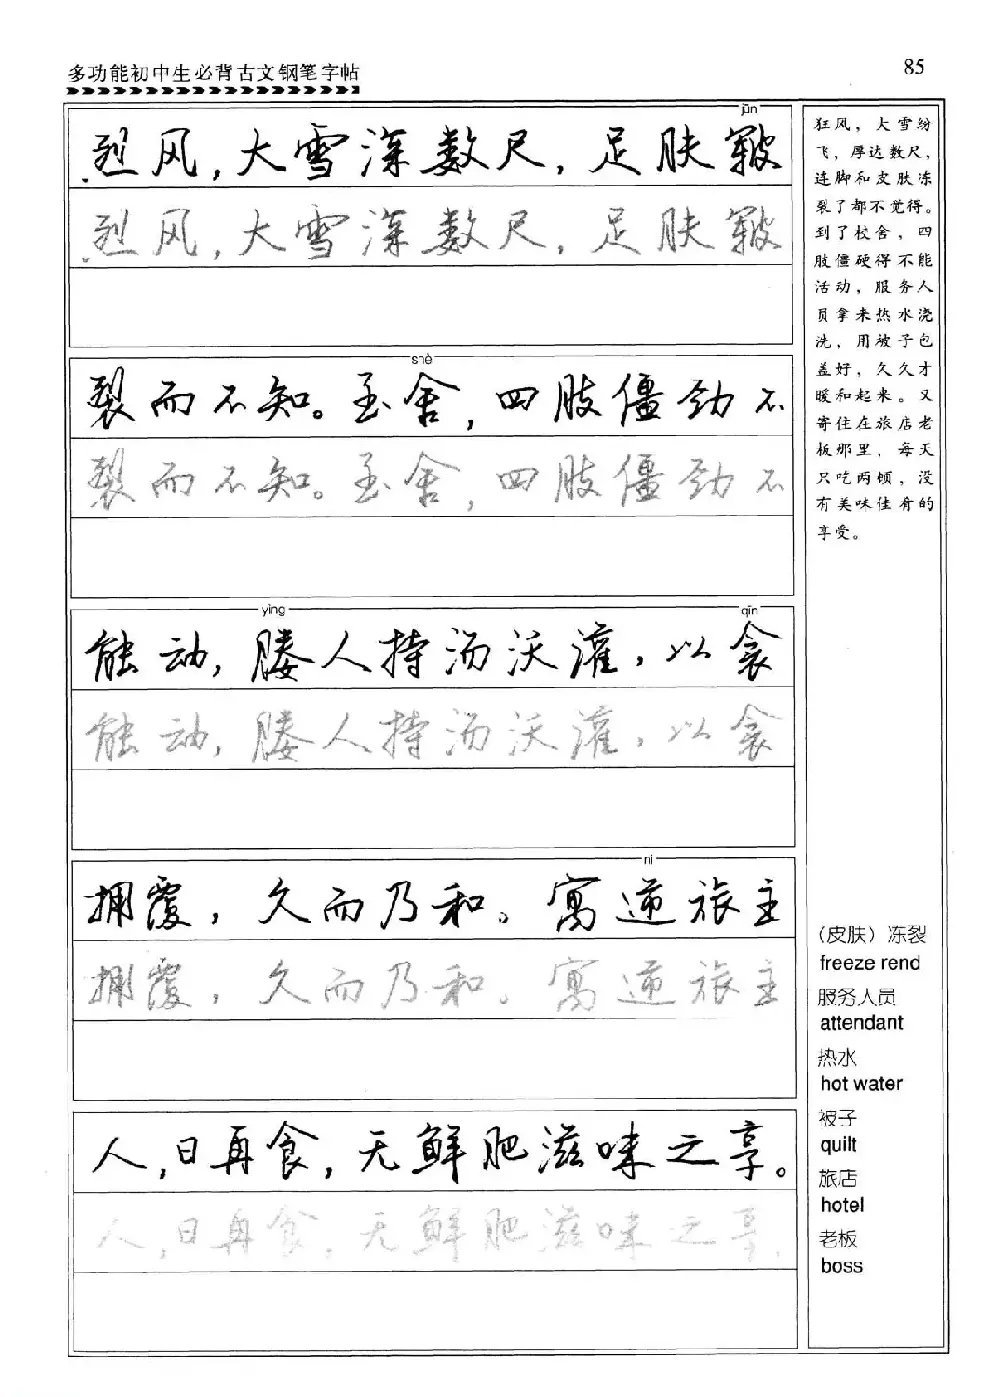 多功能初中生必背古文钢笔字帖
85
jūn
烈风,大雪深数尺,足肤皲
烈风,大雪深数尺,足肤皲
shè
裂而不知。至舍,四肢僵劲不
裂而不知。至舍,四肢僵劲不
yìng qīn
能动,媵人持汤沃灌,以衾
能动,媵人持汤沃灌,以衾
nì
拥覆,久而乃和。寓逆旅主
拥覆,久而乃和。寓逆旅主
人,日再食,无鲜肥滋味之享。
人,日再食,无鲜肥滋味之享。
狂风,大雪纷
飞,厚达数尺,
连脚和皮肤冻
裂了都不觉得。
到了校舍,四
肢僵硬得不能
活动,服务人
员拿来热水浇
洗,用被子包
盖好,久久才
暖和起来。又
寄住在旅店老
板那里,每天
只吃两顿,没
有美味佳肴的
享受。
(皮肤)冻裂
freeze rend
服务人员
attendant
热水
hot water
被子
quilt
旅店
hotel
老板
boss